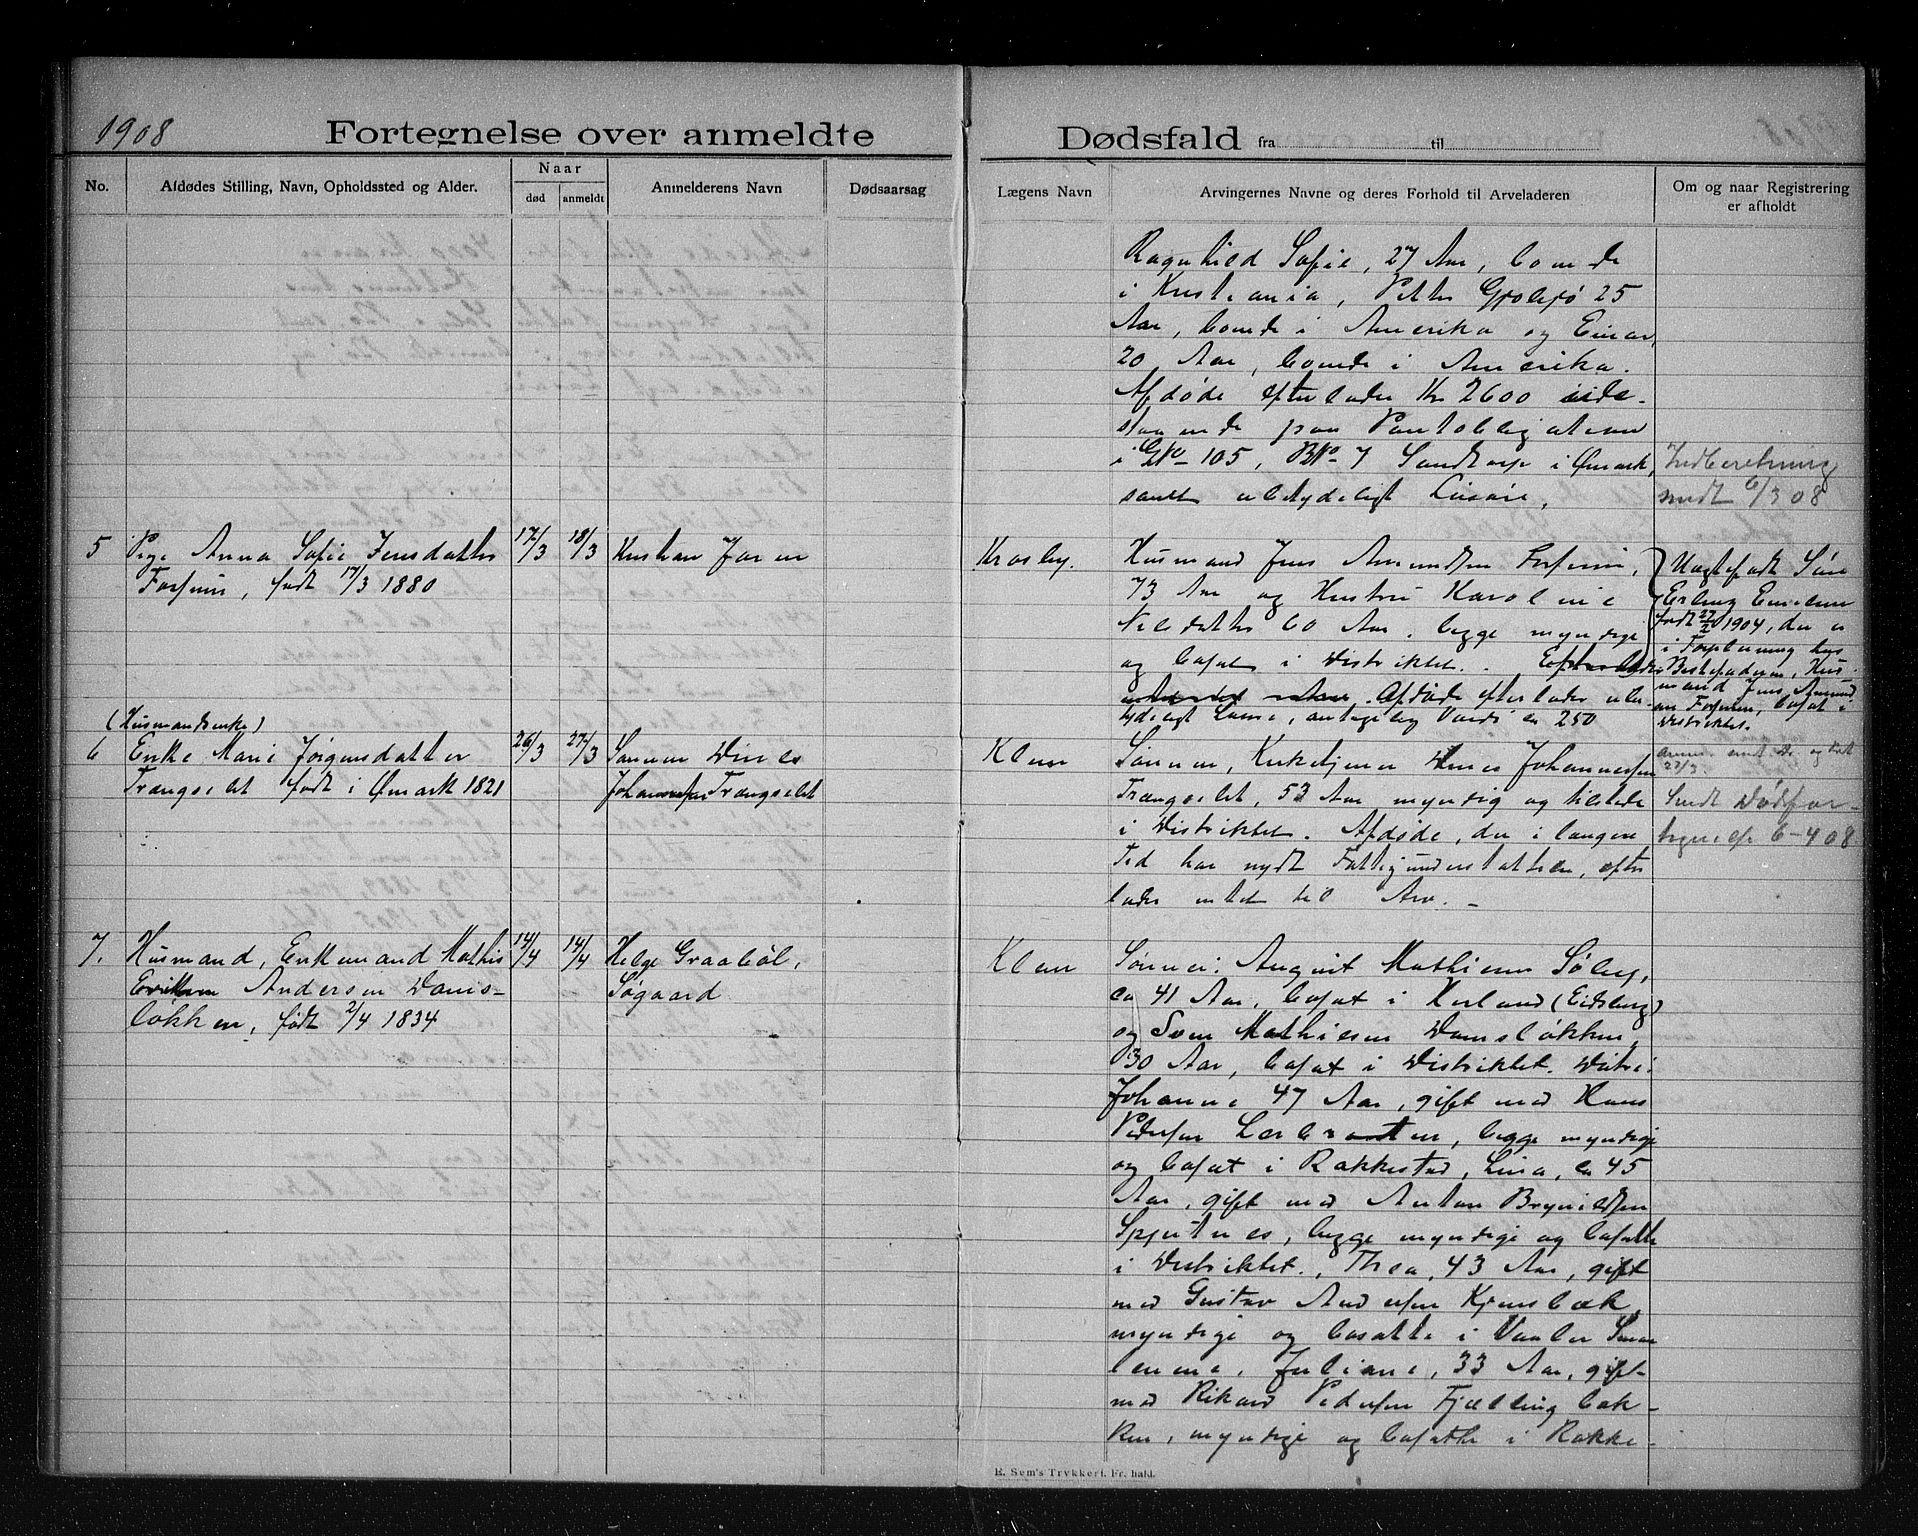 1908
Fortegnelse over anmeldte
Dødsfald fra til
No.
Afdødes Stilling, Navn, Opholdssted og Alder.
Naar
død
anmeldt
Anmelderens Navn
Dødsaarsag
Lægens Navn
Arvingernes Navne og deres Forhold til Arveladeren
Om og naar Registrering
er afholdt
Ragnhild Sofie, 27 Aar, boende
i Kristiania, Petter Gjølsjø 25
Aar, boende i Amerika og Einar,
20 Aar, boende i Amerika.
Afdøde efterlader Kr 2600 inde-
staaende paa Pantobligation
i GNo 105, BNo 7 Sandtorp i Ømark,
samt ubetydeligt Løsøre.
Indberetning
sendt 6/3 08
5
Pige Anna Sofie Jensdatter
Forsnin, født 17/3 1880
17/3
18/3
Kristian Jaren
Krosby.
Husmand Jens Amundsen Forsnin,
73 Aar og Hustru Karoline
Nilsdatter 60 Aar, begge myndige
og bosat i Distriktet. Efterlader
Afdøde efterlader ube-
tydeligt Løsøre, antagelig Værdi ca 250
Uægtefødt Søn
Erling Emilius
født 27/2 1904, der er
i Forpleining hos
Bestefaderen, Hus-
mand Jens Amund
sen Forsnin, bosat i
Distriktet.
(Husmandsenke)
6
Enke Marie Jørgensdatter
Trængselet født i Ømark 1821
26/3
27/3
Sønnen Dines
Johannesen Trængselet
Klem
Sønnen, Kirketjener Dines Johannessen
Trængselet, 53 Aar myndig og tilstede
i Distriktet. Afdøde, der i længere
Tid har nydt Fattigunderstøttelse, efter
lader intet til Arv. -
27/3.
Sendt Dødsfor-
tegnelse 6-4 08
7.
Husmand, Enkemand Mathis
Andersen Dams-
løkken, født 2/4 1834
14/4
14/4
Helge Graabøl,
Søgaard
Klem
Sønner: August Mathisen Søby,
ca 41 Aar, bosat i Herland (Eidsberg)
og Sven Mathisen Damsløkken,
30 Aar, bosat i Distriktet. Døtre:
Johanne 47 Aar, gift med Hans
Pedersen Lerbraaten, begge myndige
og bosat i Rakkestad, Lina, ca 45
Aar, gift med Anton Brynildsen
Spjutnes, begge myndige og bosatte
i Distriktet., Thea, 43 Aar, gift
med Gustav Andersen Kjensbæk,
myndige og bosatte i Vaaler Smaa
lenene, Juliane, 33 Aar, gift
med Rikard Pedersen Fjælling bak-
ken, myndige og bosatte i Rakke-
E. Sem's Trykkeri. Fr. hald.